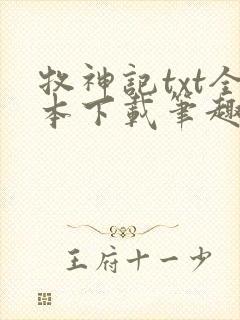 牧神記txt全
本下載筆趣
王府十一少